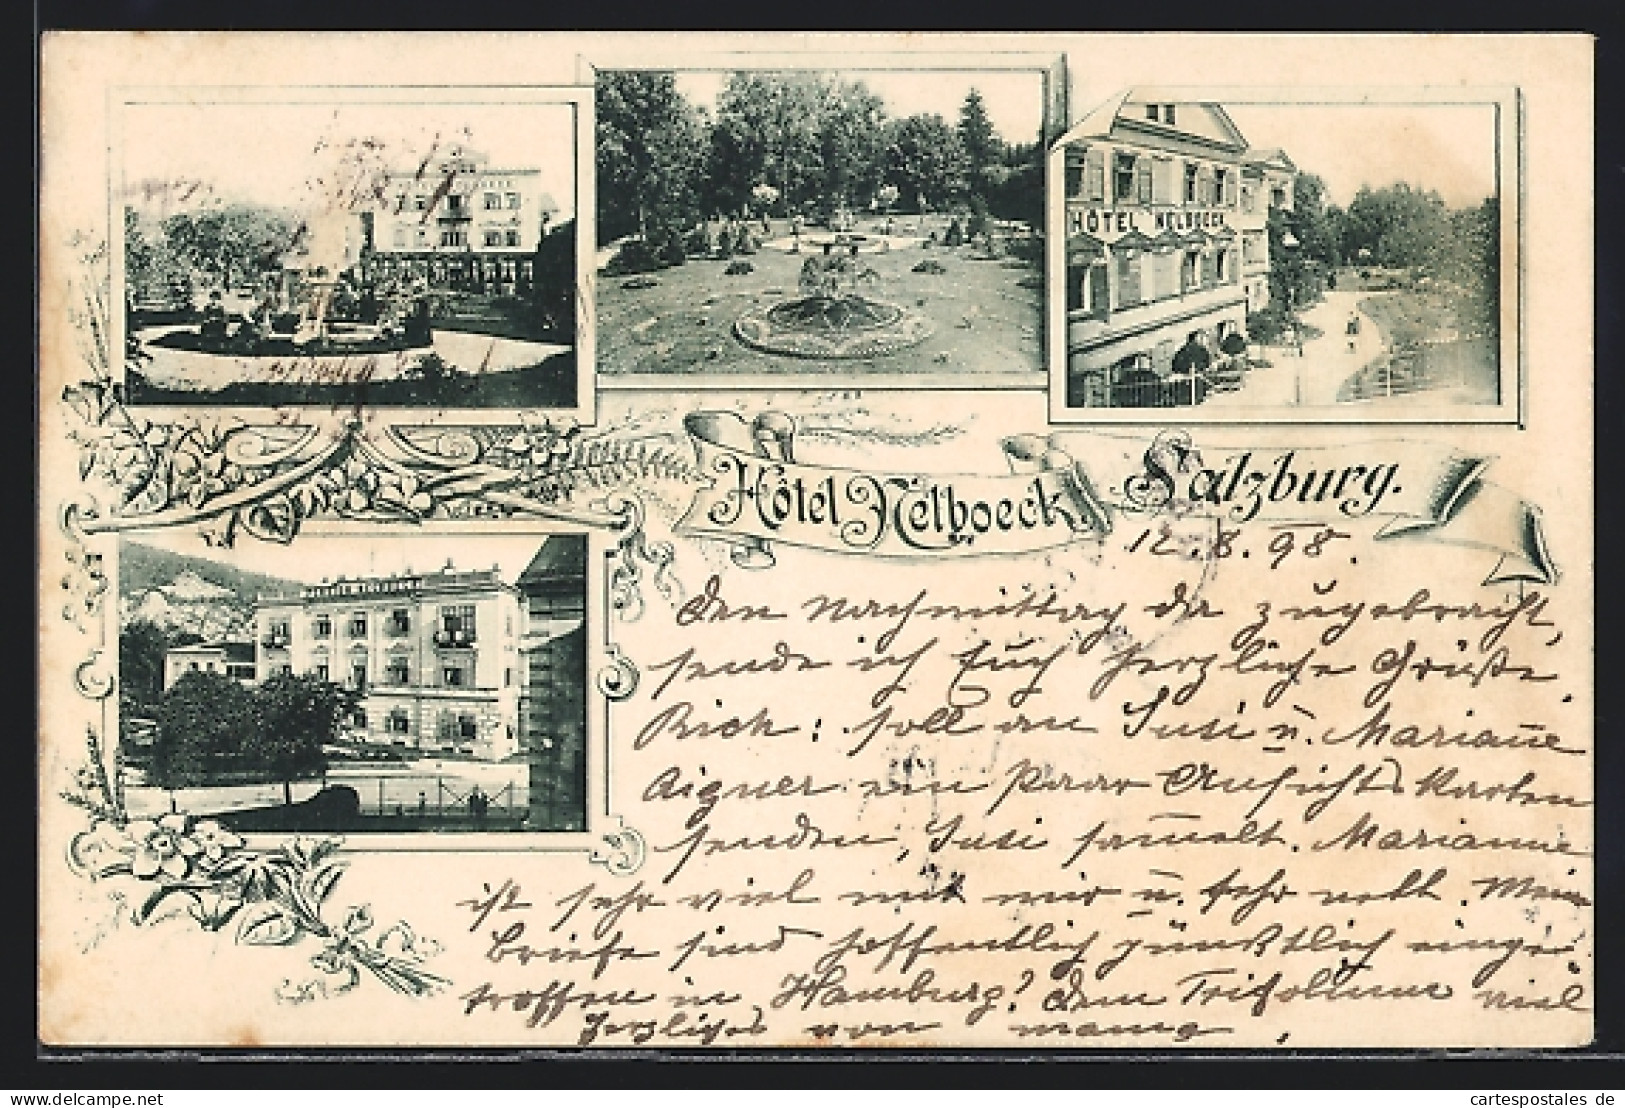 HÔTEL NELBOECK
Hôtel Nelboeck Salzburg.
12.8.98.
Den Nachmittag da zugebracht,
sende ich Euch herzliche Grüße.
Rich: soll an Susi u. Mariane
Aigner ein Paar Ansichts Karten
senden, Susi samelt. Marianne
ist sehr viel mit mir u. sehr nett. Meine
Briefe sind hoffentlich pünktlich einge-
troffen in Hamburg? Dem Trifolium viel
herzliches von Mama.
www.cartespostales.de